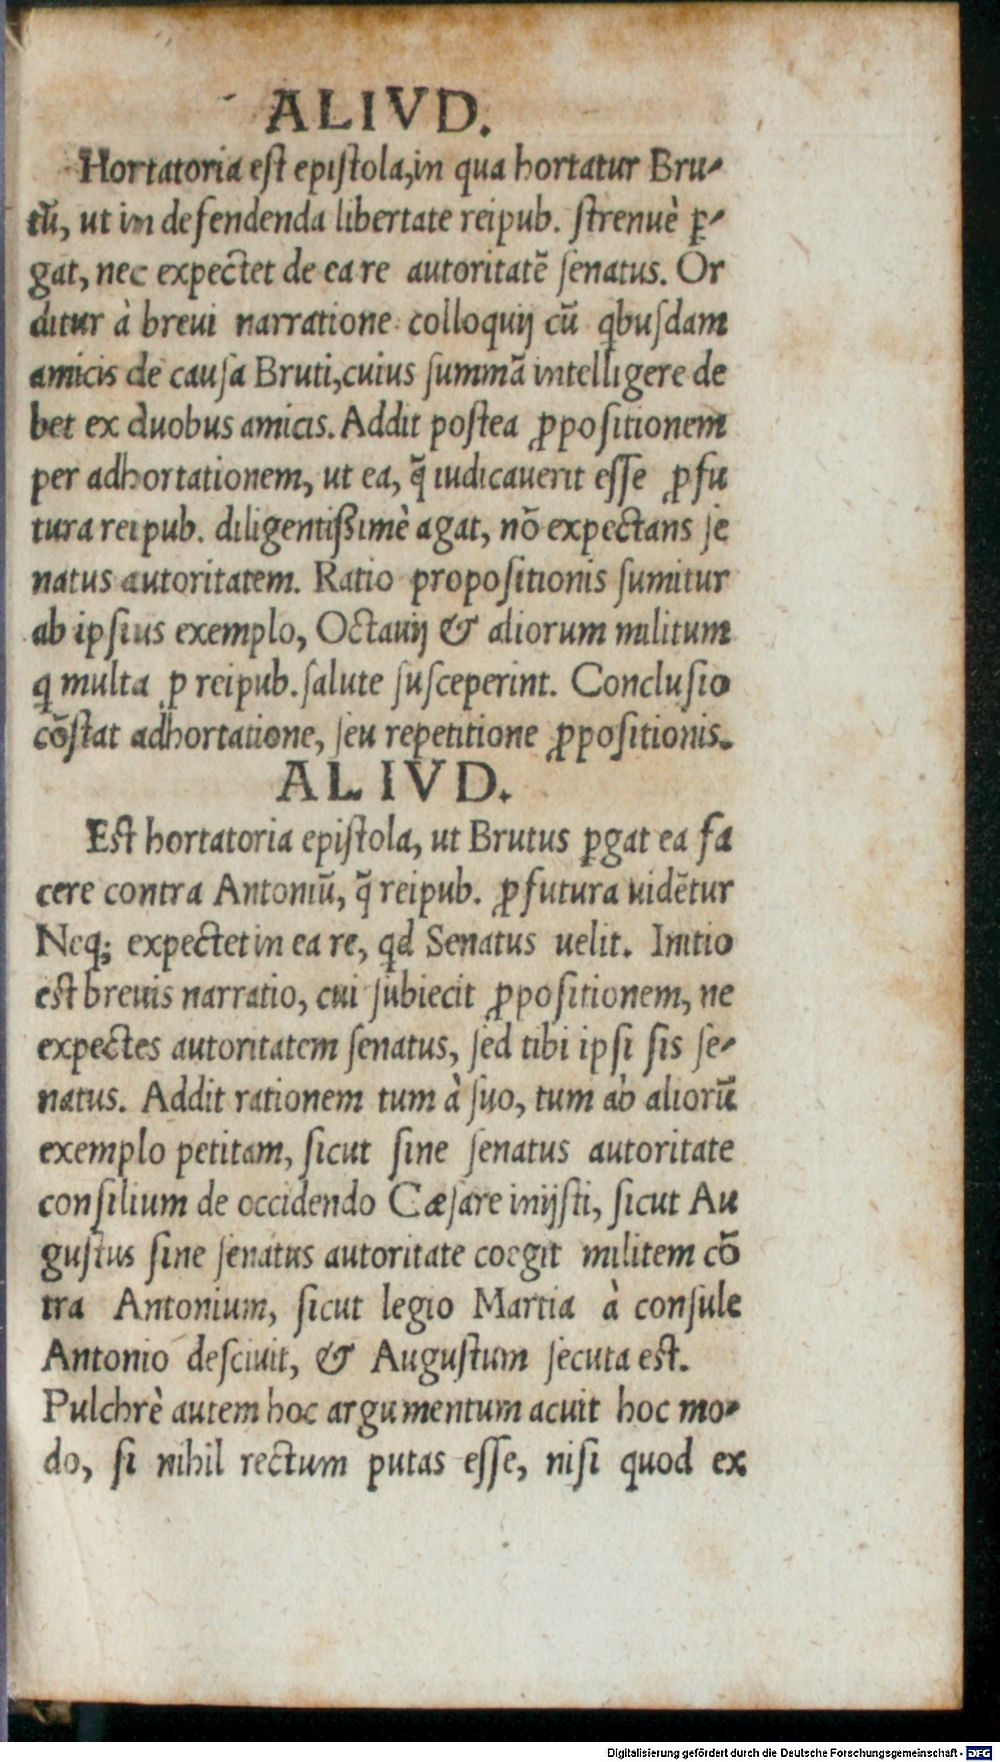 ALIVD.
Hortatoria est epistola, in qua hortatur Bru-
tũ, ut in defendenda libertate reipub. strenuè ꝑ-
gat, nec expectet de ea re autoritatẽ senatus. Or
ditur à brevi narratione colloquij cũ qbusdam
amicis de causa Bruti, cuius summã intelligere de
bet ex duobus amicis. Addit postea ꝓpositionem
per adhortationem, ut ea, q̃ iudicauerit esse ꝓfu
tura reipub. diligentißimè agat, nõ expectans se
natus autoritatem. Ratio propositionis sumitur
ab ipsius exemplo, Octauij & aliorum militum
q multa ꝓ reipub. salute susceperint. Conclusio
cõstat adhortatione, seu repetitione ꝓpositionis.
ALIVD.
Est hortatoria epistola, ut Brutus ꝑgat ea fa
cere contra Antoniũ, q̃ reipub. ꝓfutura uidẽtur
Neq; expectet in ea re, qd Senatus uelit. Initio
est breuis narratio, cui subiecit ꝓpositionem, ne
expectes autoritatem senatus, sed tibi ipsi sis se-
natus. Addit rationem tum à suo, tum ab aliorũ
exemplo petitam, sicut sine senatus autoritate
consilium de occidendo Cæsare inijsti, sicut Au
gustus sine senatus autoritate coegit militem cõ
tra Antonium, sicut legio Martia à consule
Antonio desciuit, & Augustum secuta est.
Pulchrè autem hoc argumentum acuit hoc mo-
do, si nihil rectum putas esse, nisi quod ex
Digitalisierung gefördert durch die Deutsche Forschungsgemeinschaft - DFG